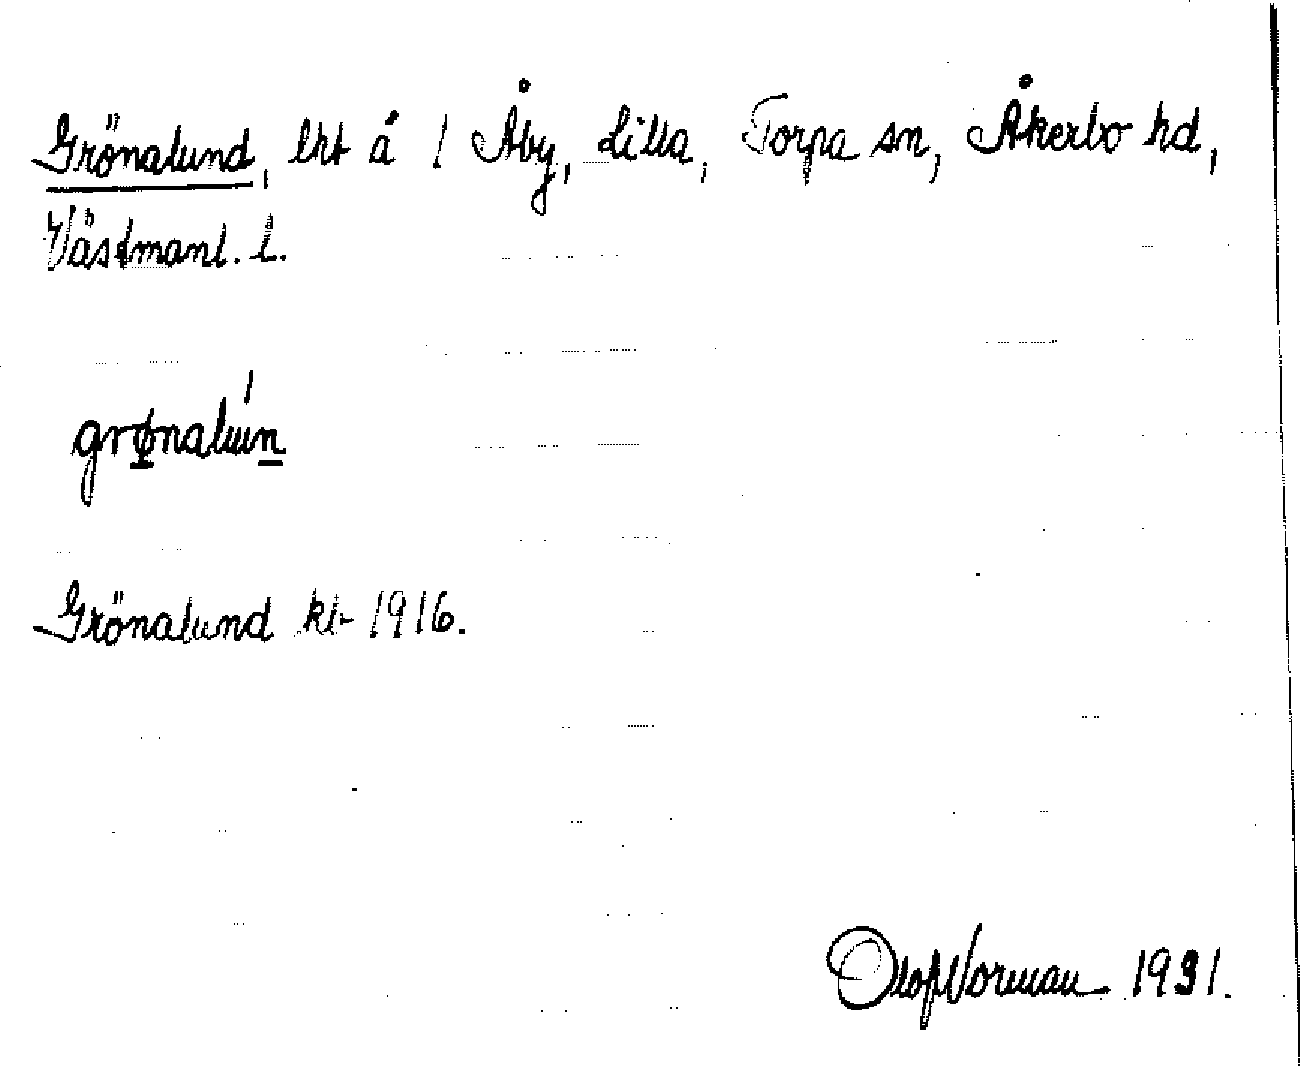 Grönalund, lht å 1 Åby, Lilla, Torpa sn, Åkerbo hd,
Västmanl. l.
grønalún
Grönalund kb 1916.
Olof Norman 1931.